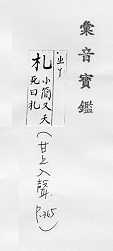 彙音寶鑑
ㄓㄚ
札 小簡又夭
死曰札
（甘上入聲
P.365